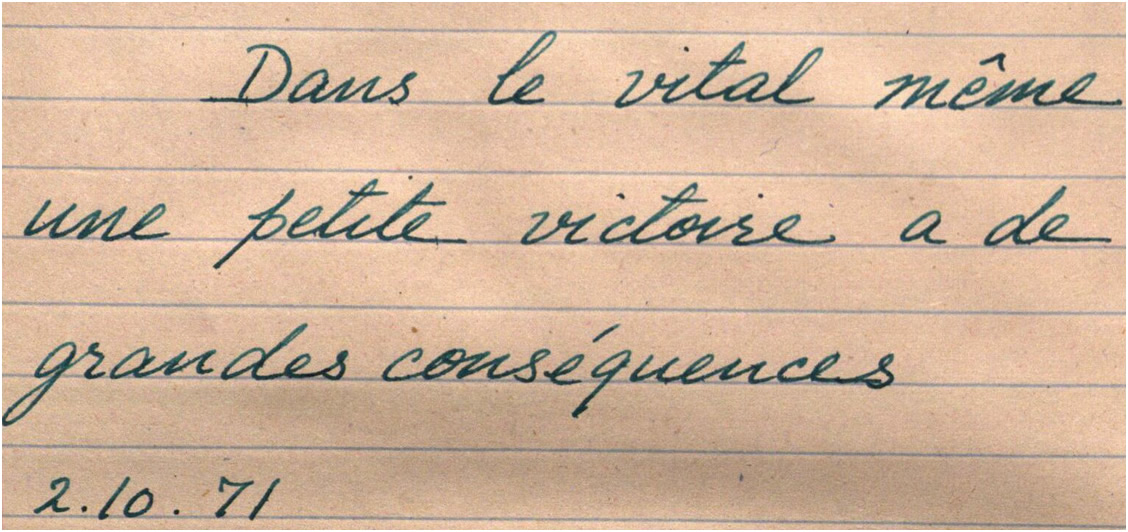 Dans le vital même
une petite victoire a de
grandes conséquences
2.10.71